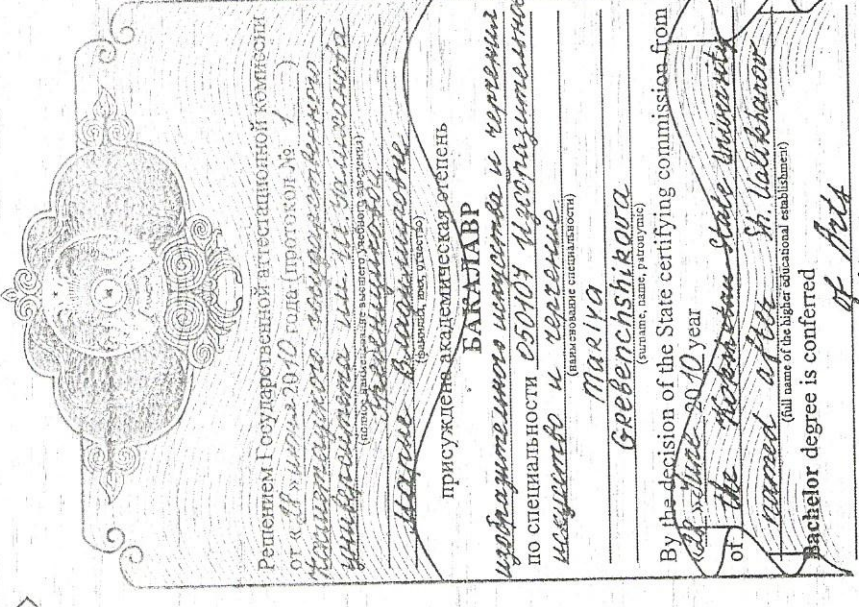 Решением Государственной аттестационной комиссии
от «28» июня 2010 года (протокол № 1)
Кокшетауского государственного
университета им. Ш. Уалиханова
(полное наименование высшего учебного заведения)
Гребенщиковой
Марие Владимировне
(фамилия, имя, отчество)
присуждена академическая степень
БАКАЛАВР
изобразительного искусства и черчения
по специальности 050107 Изобразительное
искусство и черчение
(наименование специальности)
Mariya
Grebenchshikova
(surname, name, patronymic)
By the decision of the State certifying commission from
«28» June 2010 year
of the Kokshetau State University
named after Sh. Ualikhanov
(full name of the higher educational establishment)
Bachelor degree is conferred
of Arts